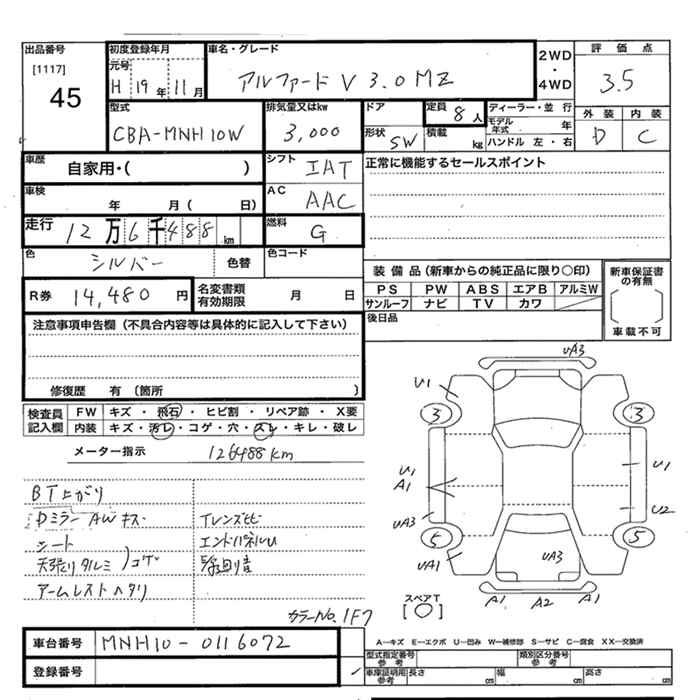 出品番号
[1117]
45
初度登録年月
元号
H 19年 11月
車名・グレード
アルファード V 3.0 MZ
2WD
・
4WD
評価点
3.5
型式
CBA-MNH10W
排気量又はkw
3,000
ドア
形状
SW
定員
8人
積載
kg
ディーラー・並行
モデル年式
年
ハンドル 左・右
外装 内装
D C
車歴
自家用・( )
シフト
IAT
正常に機能するセールスポイント
車検
年 月( 日)
AC
AAC
走行
12万6千488km
燃料
G
色
シルバー
色替
色コード
R券
14,480円
名変書類
有効期限
月 日
装備品(新車からの純正品に限り○印)
PS PW ABS エアB アルミW
サンルーフ ナビ TV カワ
後日品
新車保証書
の有無
車載不可
注意事項申告欄(不具合内容等は具体的に記入して下さい)
修復歴 有(箇所 )
検査員
記入欄
FW キズ・飛石・ヒビ割・リペア跡・X要
内装 キズ・汚レ・コゲ・穴・スレ・キレ・破レ
メーター指示
126488km
BT上がり
Dミラー AWキズ
シート
天張りタルミ
コゲ
アームレストヘタリ
エンドパネルU
カラーNo. 1F7
UA3
U1
3
3
U1
A1
U1
UA3
U2
5
5
UA1
UA3
A1
A2
A1
スペアT
[○]
車台番号
MNH10-0116072
登録番号
A-キズ E-エクボ U-凹み W-補修跡 S-サビ C-腐食 XX-交換済
型式指定番号
参考
類別区分番号
参考
車庫証明用
参考
長さ cm 幅 cm 高さ cm